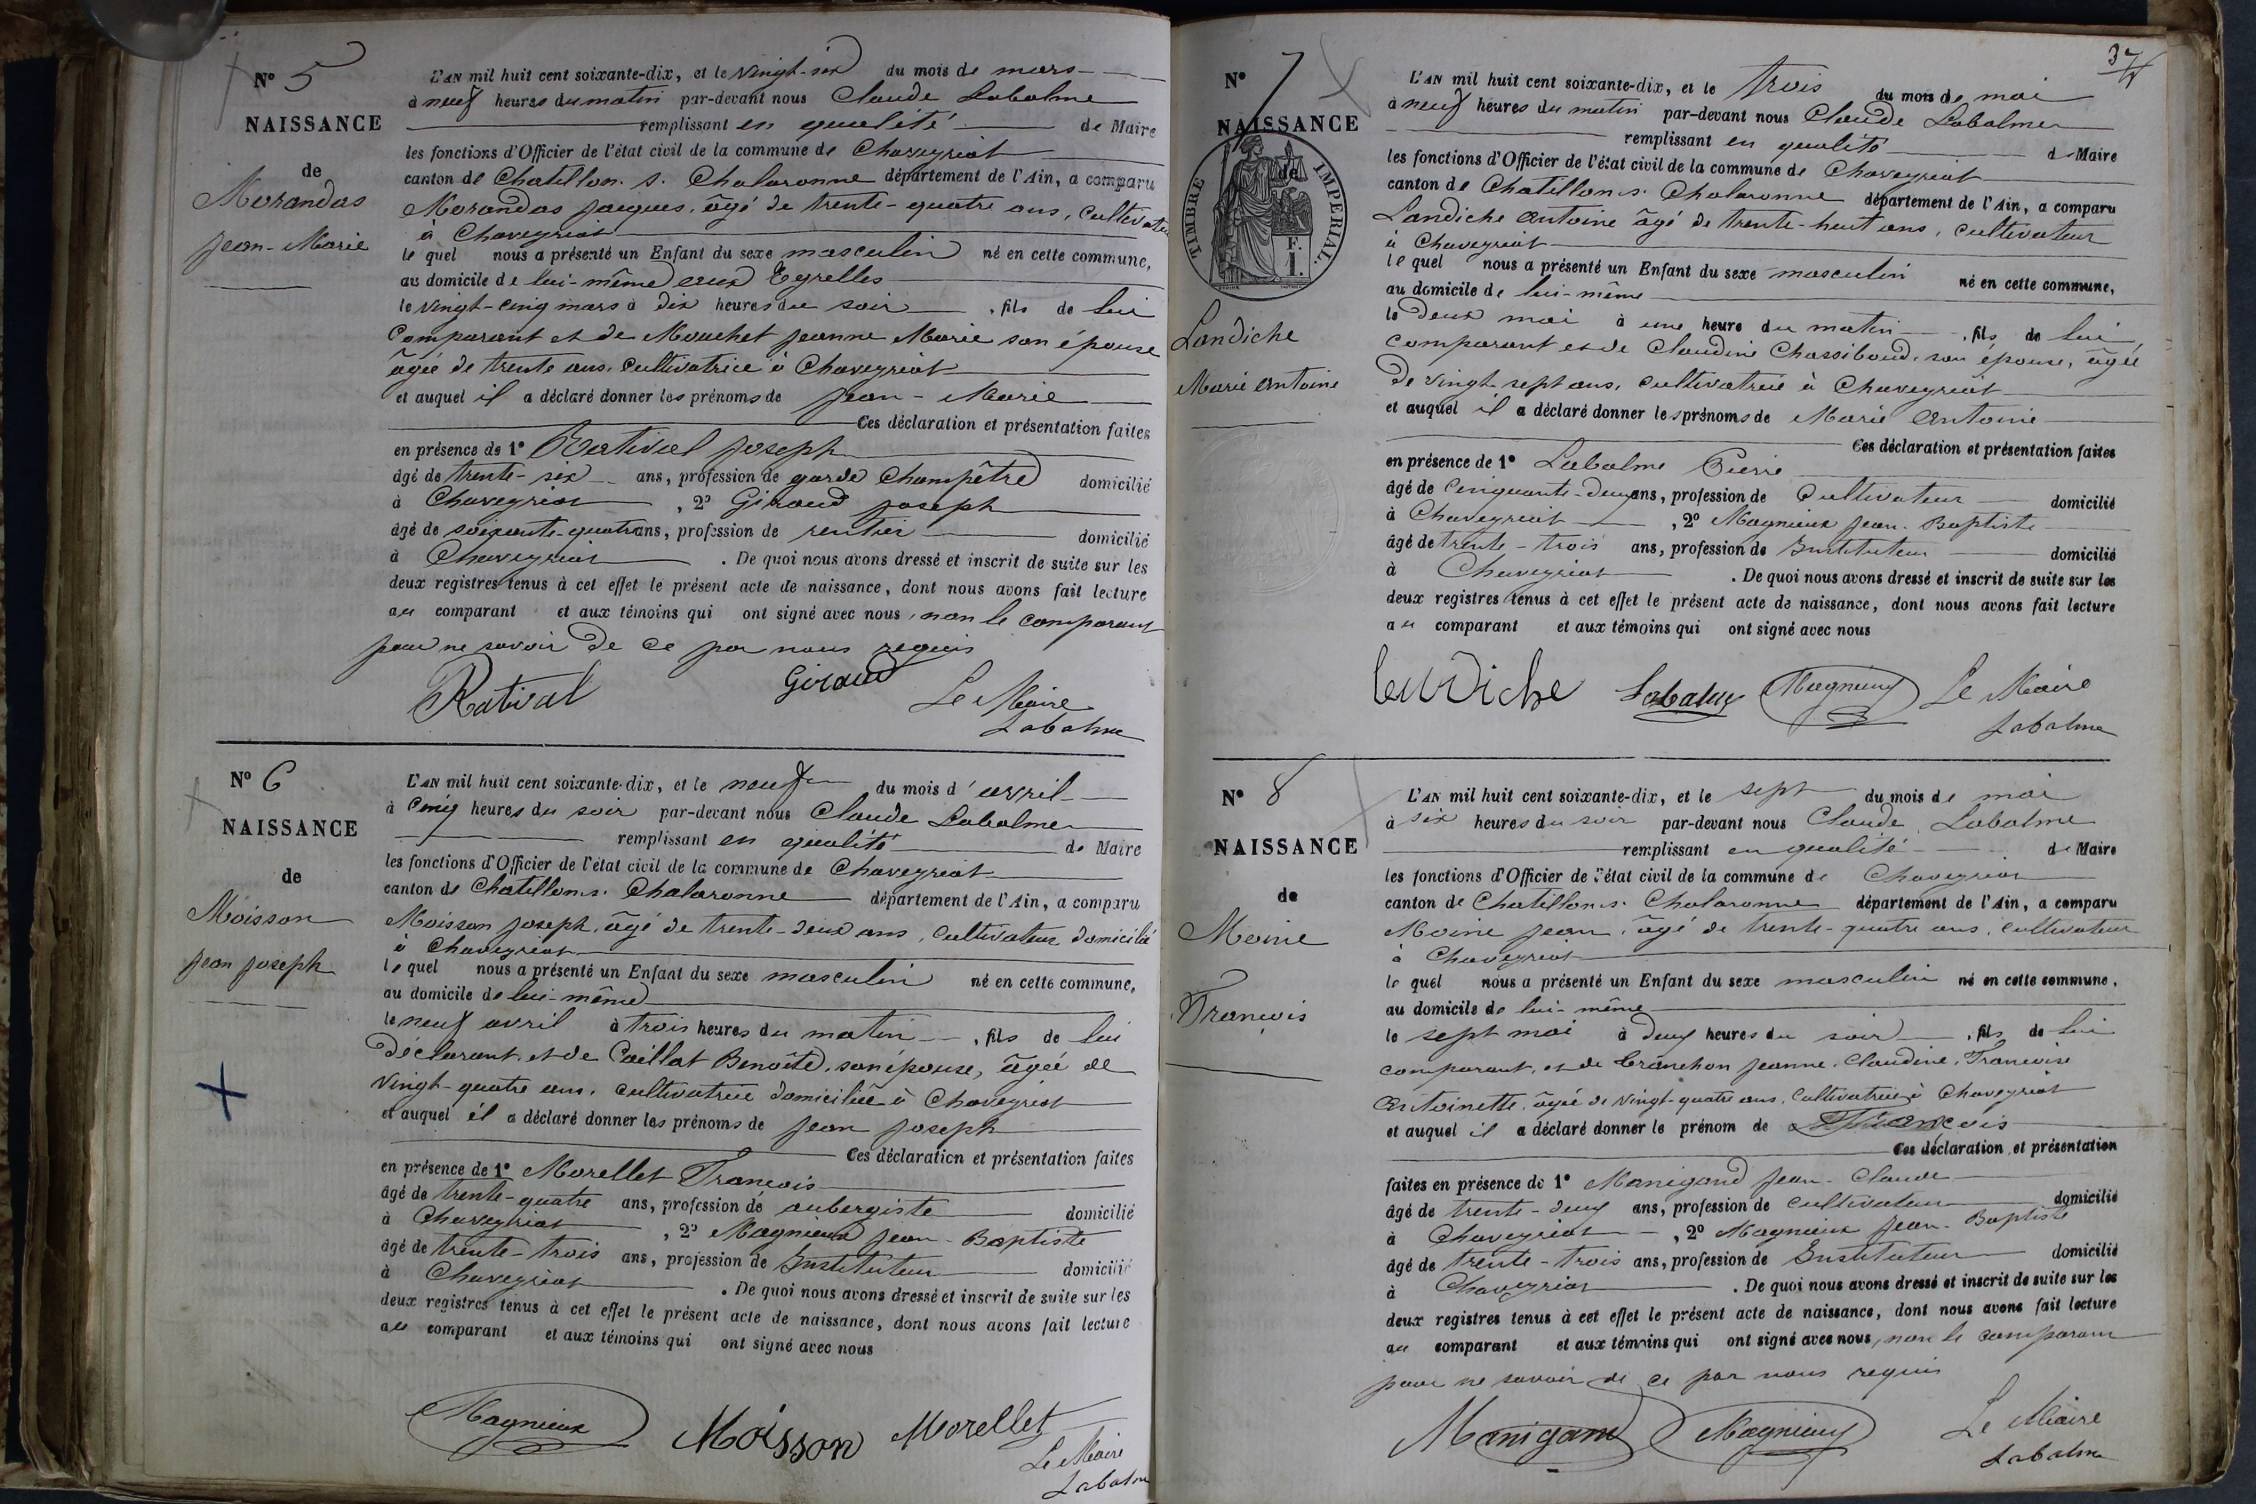 N° 5
NAISSANCE
de
Morandas
Jean-Marie
L'AN mil huit cent soixante-dix, et le vingt-six du mois de mars
à neuf heures du matin par-devant nous Claude Labalme
remplissant en qualité de Maire
les fonctions d'Officier de l'état civil de la commune de Chaveyriat
canton de Chatillon s. Chalaronne département de l'Ain, a comparu
Morandas Jacques, âgé de trente-quatre ans, cultivateur
à Chaveyriat
lequel nous a présenté un Enfant du sexe masculin né en cette commune,
au domicile de lui-même aux Eyrelles
le vingt-cinq mars à dix heures du soir, fils de lui
Comparant et de Mouchet Jeanne Marie son épouse
âgée de trente ans, cultivatrice à Chaveyriat
et auquel il a déclaré donner les prénoms de Jean-Marie
Ces déclaration et présentation faites
en présence de 1° Ratival Joseph
âgé de trente-six ans, profession de garde Champêtre domicilié
à Chaveyriat, 2° Giraud Joseph
âgé de soixante-quatre ans, profession de rentier domicilié
à Chaveyriat. De quoi nous avons dressé et inscrit de suite sur les
deux registres tenus à cet effet le présent acte de naissance, dont nous avons fait lecture
au comparant et aux témoins qui ont signé avec nous, non le comparant
pour ne savoir de ce par nous requis
Rativat Giraud Le Maire
Labalme
N° 6
NAISSANCE
de
Moisson
Jean Joseph
L'AN mil huit cent soixante-dix, et le neuf du mois d'avril
à cinq heures du soir par-devant nous Claude Labalme
remplissant en qualité de Maire
les fonctions d'Officier de l'état civil de la commune de Chaveyriat
canton de Chatillon s. Chalaronne département de l'Ain, a comparu
Moisson Joseph, âgé de trente-deux ans, cultivateur domicilié
à Chaveyriat
lequel nous a présenté un Enfant du sexe masculin né en cette commune,
au domicile de lui-même
le neuf avril à trois heures du matin, fils de lui
déclarant, et de Caillat Benoîte, son épouse, âgée de
vingt-quatre ans, cultivatrice domiciliée à Chaveyriat
et auquel il a déclaré donner les prénoms de Jean Joseph
Ces déclaration et présentation faites
en présence de 1° Morellet François
âgé de trente-quatre ans, profession de aubergiste domicilié
à Chaveyriat, 2° Magnieux Jean-Baptiste
âgé de trente-trois ans, profession de Instituteur domicilié
à Chaveyriat. De quoi nous avons dressé et inscrit de suite sur les
deux registres tenus à cet effet le présent acte de naissance, dont nous avons fait lecture
au comparant et aux témoins qui ont signé avec nous
Magnieux Moisson Morellet
Le Maire
Labalme
37
N° 7
NAISSANCE
de
TIMBRE IMPERIAL.
F.
1.
Landiche
Marie Antoine
L'AN mil huit cent soixante-dix, et le trois du mois de mai
à neuf heures du matin par-devant nous Claude Labalme
remplissant en qualité de Maire
les fonctions d'Officier de l'état civil de la commune de Chaveyriat
canton de Chatillon s. Chalaronne département de l'Ain, a comparu
Landiche Antoine âgé de trente-huit ans, cultivateur
à Chaveyriat
lequel nous a présenté un Enfant du sexe masculin né en cette commune,
au domicile de lui-même
le deux mai à une heure du matin, fils de lui
comparant et de Claudine Chassiboud, son épouse, âgée
de vingt-sept ans, cultivatrice à Chaveyriat
et auquel il a déclaré donner les prénoms de Marie Antoine
Ces déclaration et présentation faites
en présence de 1° Labalme Pierre
âgé de Cinquante-deux ans, profession de Cultivateur domicilié
à Chaveyriat, 2° Magnieux Jean-Baptiste
âgé de trente-trois ans, profession de Instituteur domicilié
à Chaveyriat. De quoi nous avons dressé et inscrit de suite sur les
deux registres tenus à cet effet le présent acte de naissance, dont nous avons fait lecture
au comparant et aux témoins qui ont signé avec nous
landiche Labalme Magnieux Le Maire
Labalme
N° 8
NAISSANCE
de
Moine
François
L'AN mil huit cent soixante-dix, et le sept du mois de mai
à six heures du soir par-devant nous Claude Labalme
remplissant en qualité de Maire
les fonctions d'Officier de l'état civil de la commune de Chaveyriat
canton de Chatillon s. Chalaronne département de l'Ain, a comparu
Moine Jean, âgé de trente-quatre ans, cultivateur
à Chaveyriat
lequel nous a présenté un Enfant du sexe masculin né en cette commune,
au domicile de lui-même
le sept mai à deux heures du soir, fils de lui
comparant, et de Cranchon Jeanne, Claudine, Francoise
Antoinette, âgée de vingt-quatre ans, Cultivatrice à Chaveyriat
et auquel il a déclaré donner le prénom de François
Ces déclaration et présentation
faites en présence de 1° Manigand Jean-Claude
âgé de trente-deux ans, profession de cultivateur domicilié
à Chaveyriat, 2° Magnieux Jean-Baptiste
âgé de trente-trois ans, profession de Instituteur domicilié
à Chaveyriat. De quoi nous avons dressé et inscrit de suite sur les
deux registres tenus à cet effet le présent acte de naissance, dont nous avons fait lecture
au comparant et aux témoins qui ont signé avec nous, non le comparant
pour ne savoir de ce par nous requis
Manigand Magnieux Le Maire
Labalme